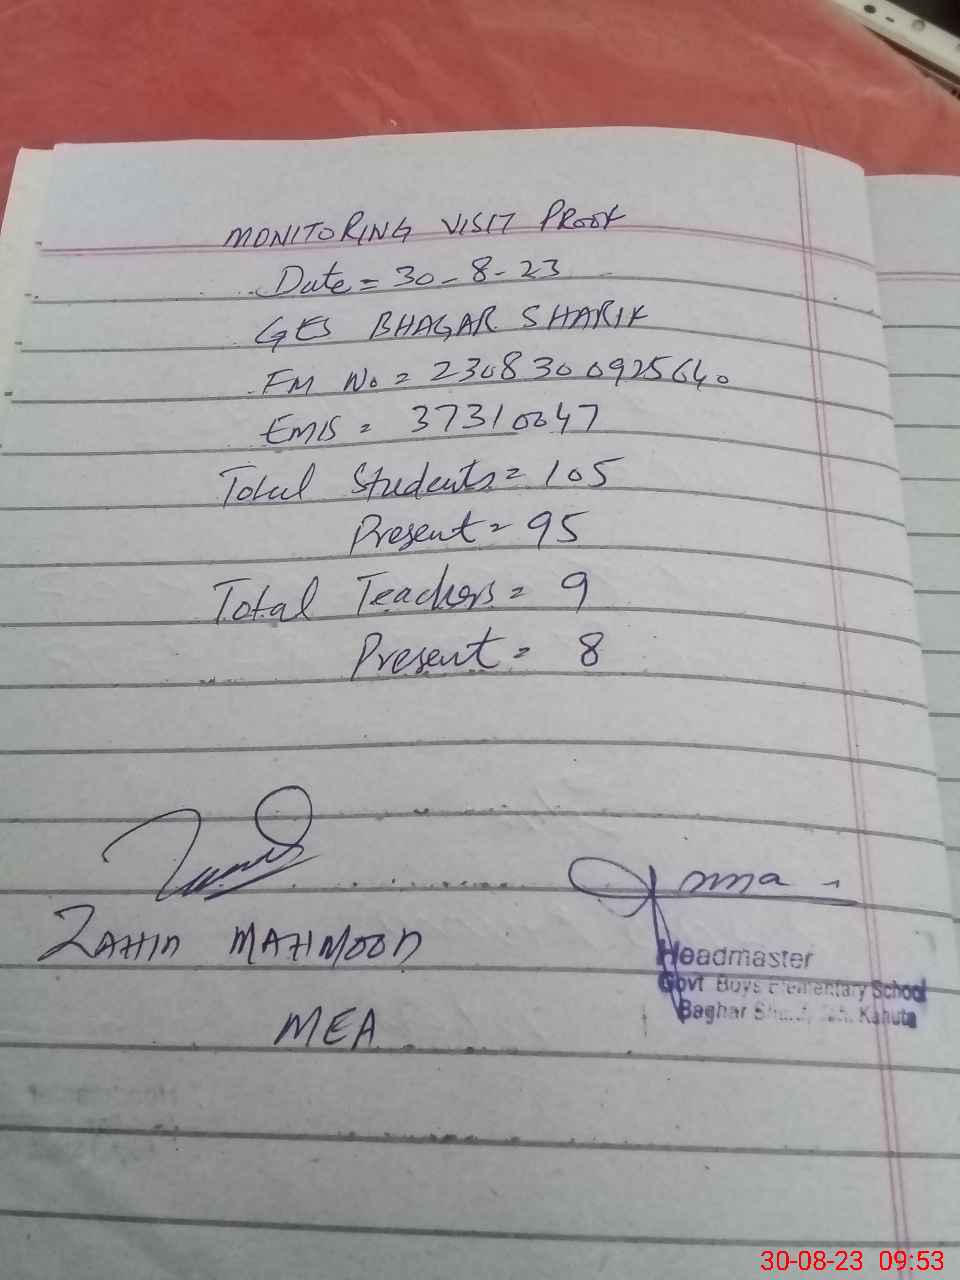 MONITORING VISIT PROOF
Date = 30-8-23
GES BHAGAR SHARIF
FM No = 2308300925640
EMIS = 37310047
Total Students = 105
Present = 95
Total Teachers = 9
Present = 8
MAHMOOD
MEA
Headmaster
Govt Boys Elementary School
Baghar Kahuta
30-08-23 09:53